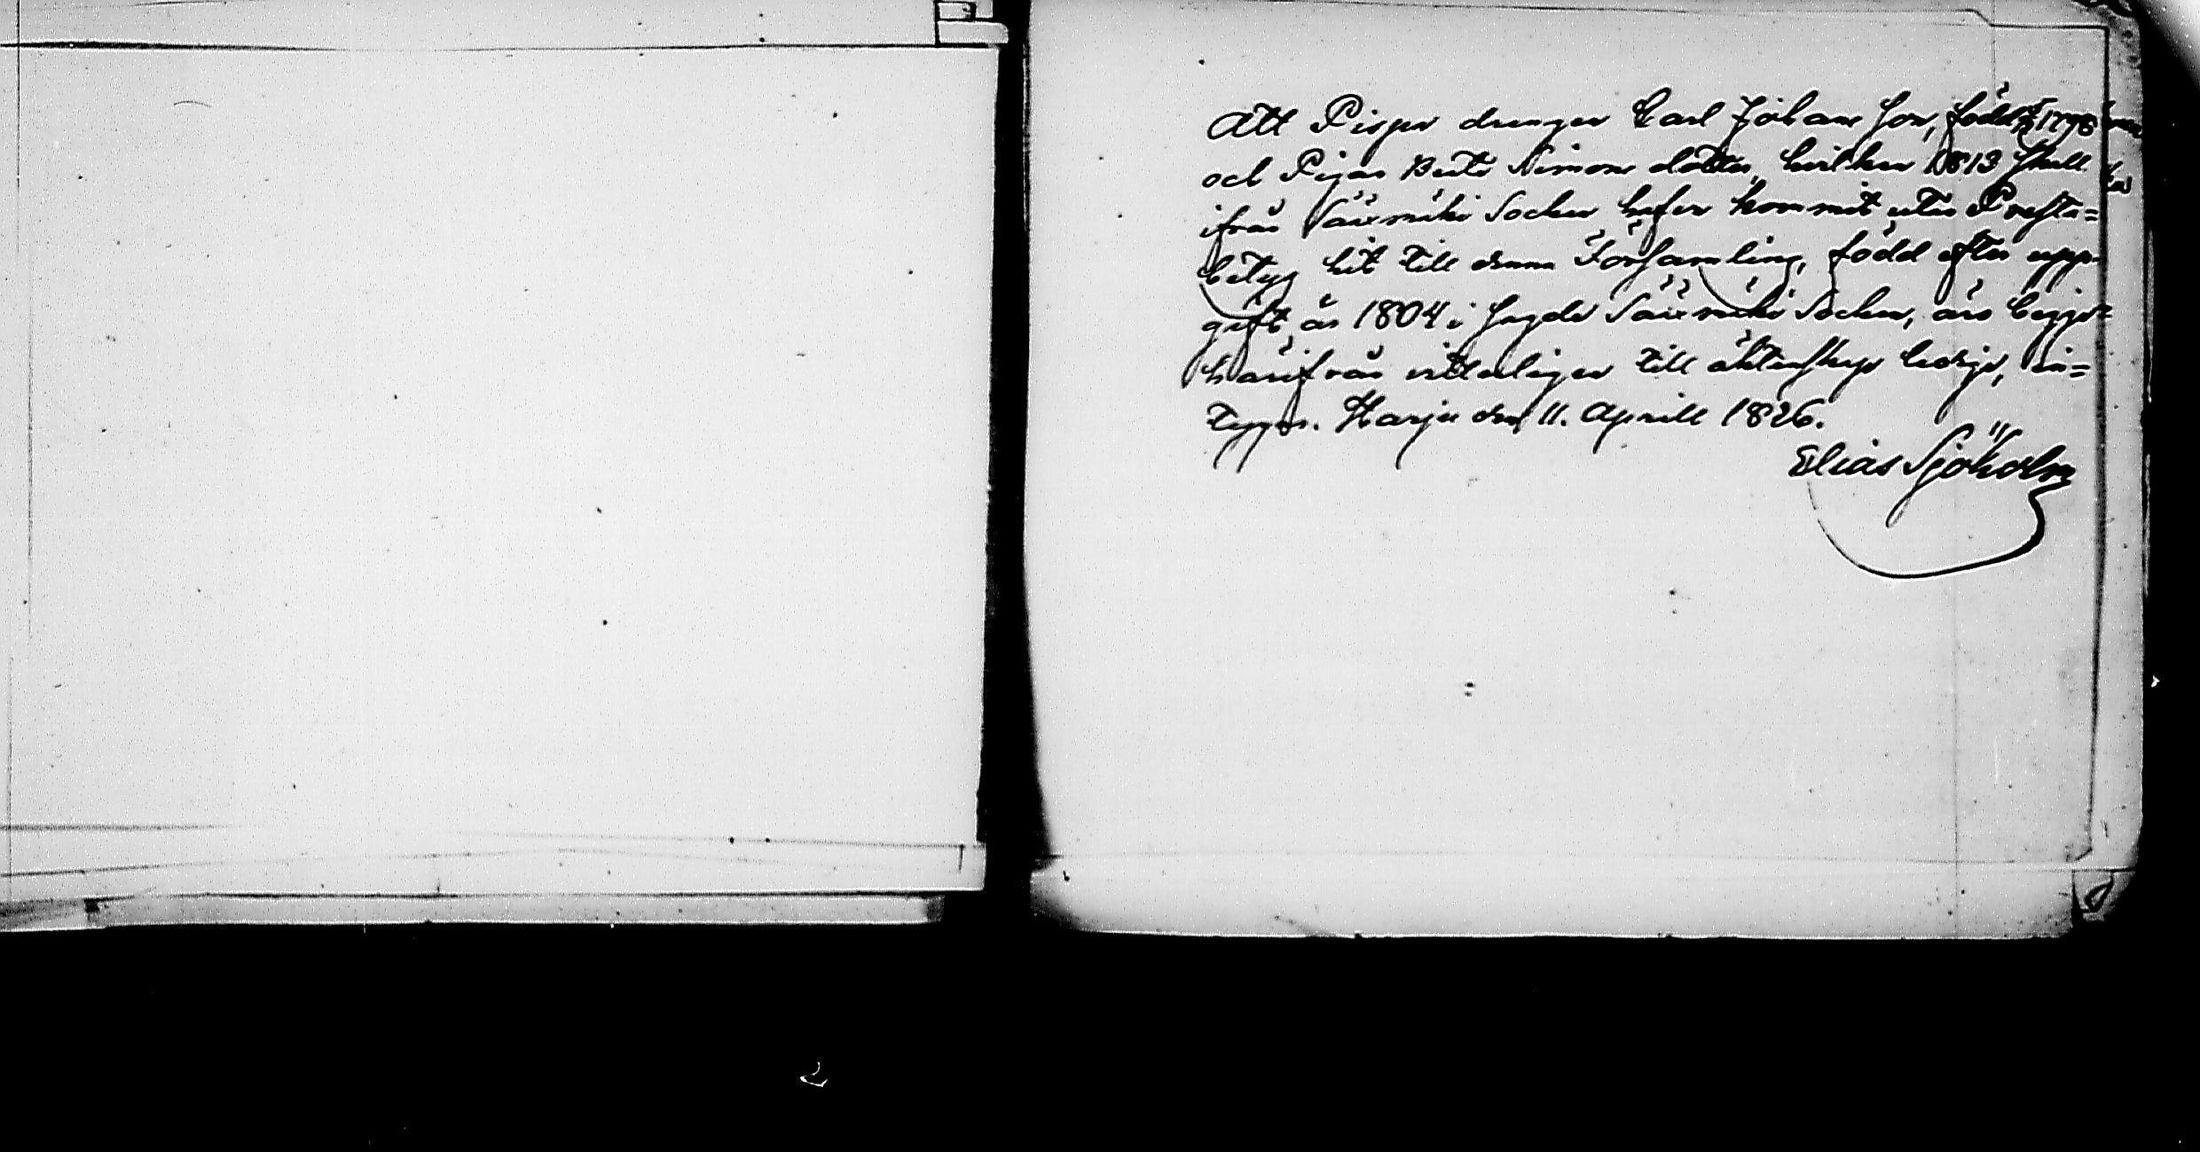 Att Pispa drengen Carl Johans Son, född 1798
och Pigan Beata Simons dotter, hvilken 1813 skall
ifrån Sääxmäki Socken hafva kommit utan Presta=
betyg hit till denna Församling, född efter upp=
gift år 1804 i sagde Sääxmäki Socken, äro begge
härifrån vitterligen till äktenskap lediga, in=
tygas. Harju den 11. Aprill 1826.
Elias Sjöholm